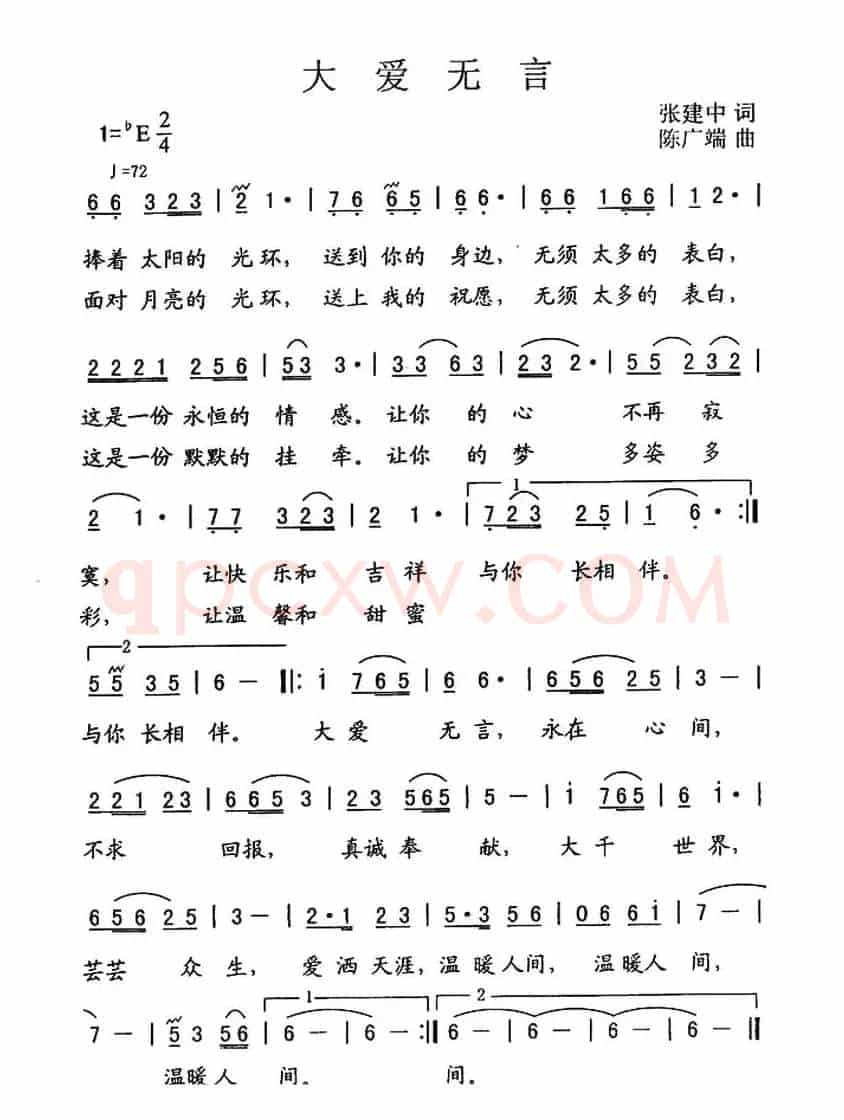 大爱无言
张建中 词
1=♭E 2/4
陈广端 曲
♩=72
6 6 3 2 3 | 2 1· | 7 6 6 5 | 6 6· | 6 6 1 6 6 | 1 2· |
捧着 太阳的 光环, 送到 你的 身边, 无须 太多的 表白,
面对 月亮的 光环, 送上 我的 祝愿, 无须 太多的 表白,
2 2 2 1 2 5 6 | 5 3 3· | 3 3 6 3 | 2 3 2· | 5 5 2 3 2 |
这是一份 永恒的 情 感。让你 的 心 不再 寂
这是一份 默默的 挂 牵。让你 的 梦 多姿 多
1
2 1· | 7 7 3 2 3 | 2 1· | 7 2 3 2 5 | 1 6· :||
寞, 让快 乐和 吉祥 与你 长相 伴。
彩, 让温 馨和 甜蜜
qpcxw.COM
2
5 5 3 5 | 6 — ||: i 7 6 5 | 6 6· | 6 5 6 2 5 | 3 — |
与你 长相 伴。 大爱 无言, 永在 心间,
2 2 1 2 3 | 6 6 5 3 | 2 3 5 6 5 | 5 — | i 7 6 5 | 6 i· |
不求 回报, 真诚奉 献, 大千 世界,
6 5 6 2 5 | 3 — | 2·1 2 3 | 5·3 5 6 | 0 6 6 i | 7 — |
芸芸 众生, 爱洒天涯,温暖人间, 温暖人 间,
1 2
7 — | 5 3 5 6 | 6 — | 6 — :|| 6 — | 6 — | 6 — | 6 — ||
温暖人 间。 间。